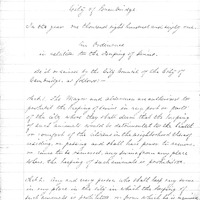 City of Cambridge
In the year one thousand eight hundred and eighty one.
An Ordinance
in relation to the Keeping of Swine.
Be it ordained by the City Council of the City of
Cambridge as follows:—
Sect. 1. The Mayor and Aldermen are authorized to
prohibit the keeping of swine in any part or parts
of the City where they shall deem that the keeping
of such animals would be detrimental to the health
or comfort of the citizens in the neighborhood
residing, or passing and shall have power to remove
or cause to be removed, any swine from any place
where the keeping of such animals is prohibited.
Sect. 2. Any and every person who shall keep any swine
in any place in the city in which the keeping of
such animals is prohibited